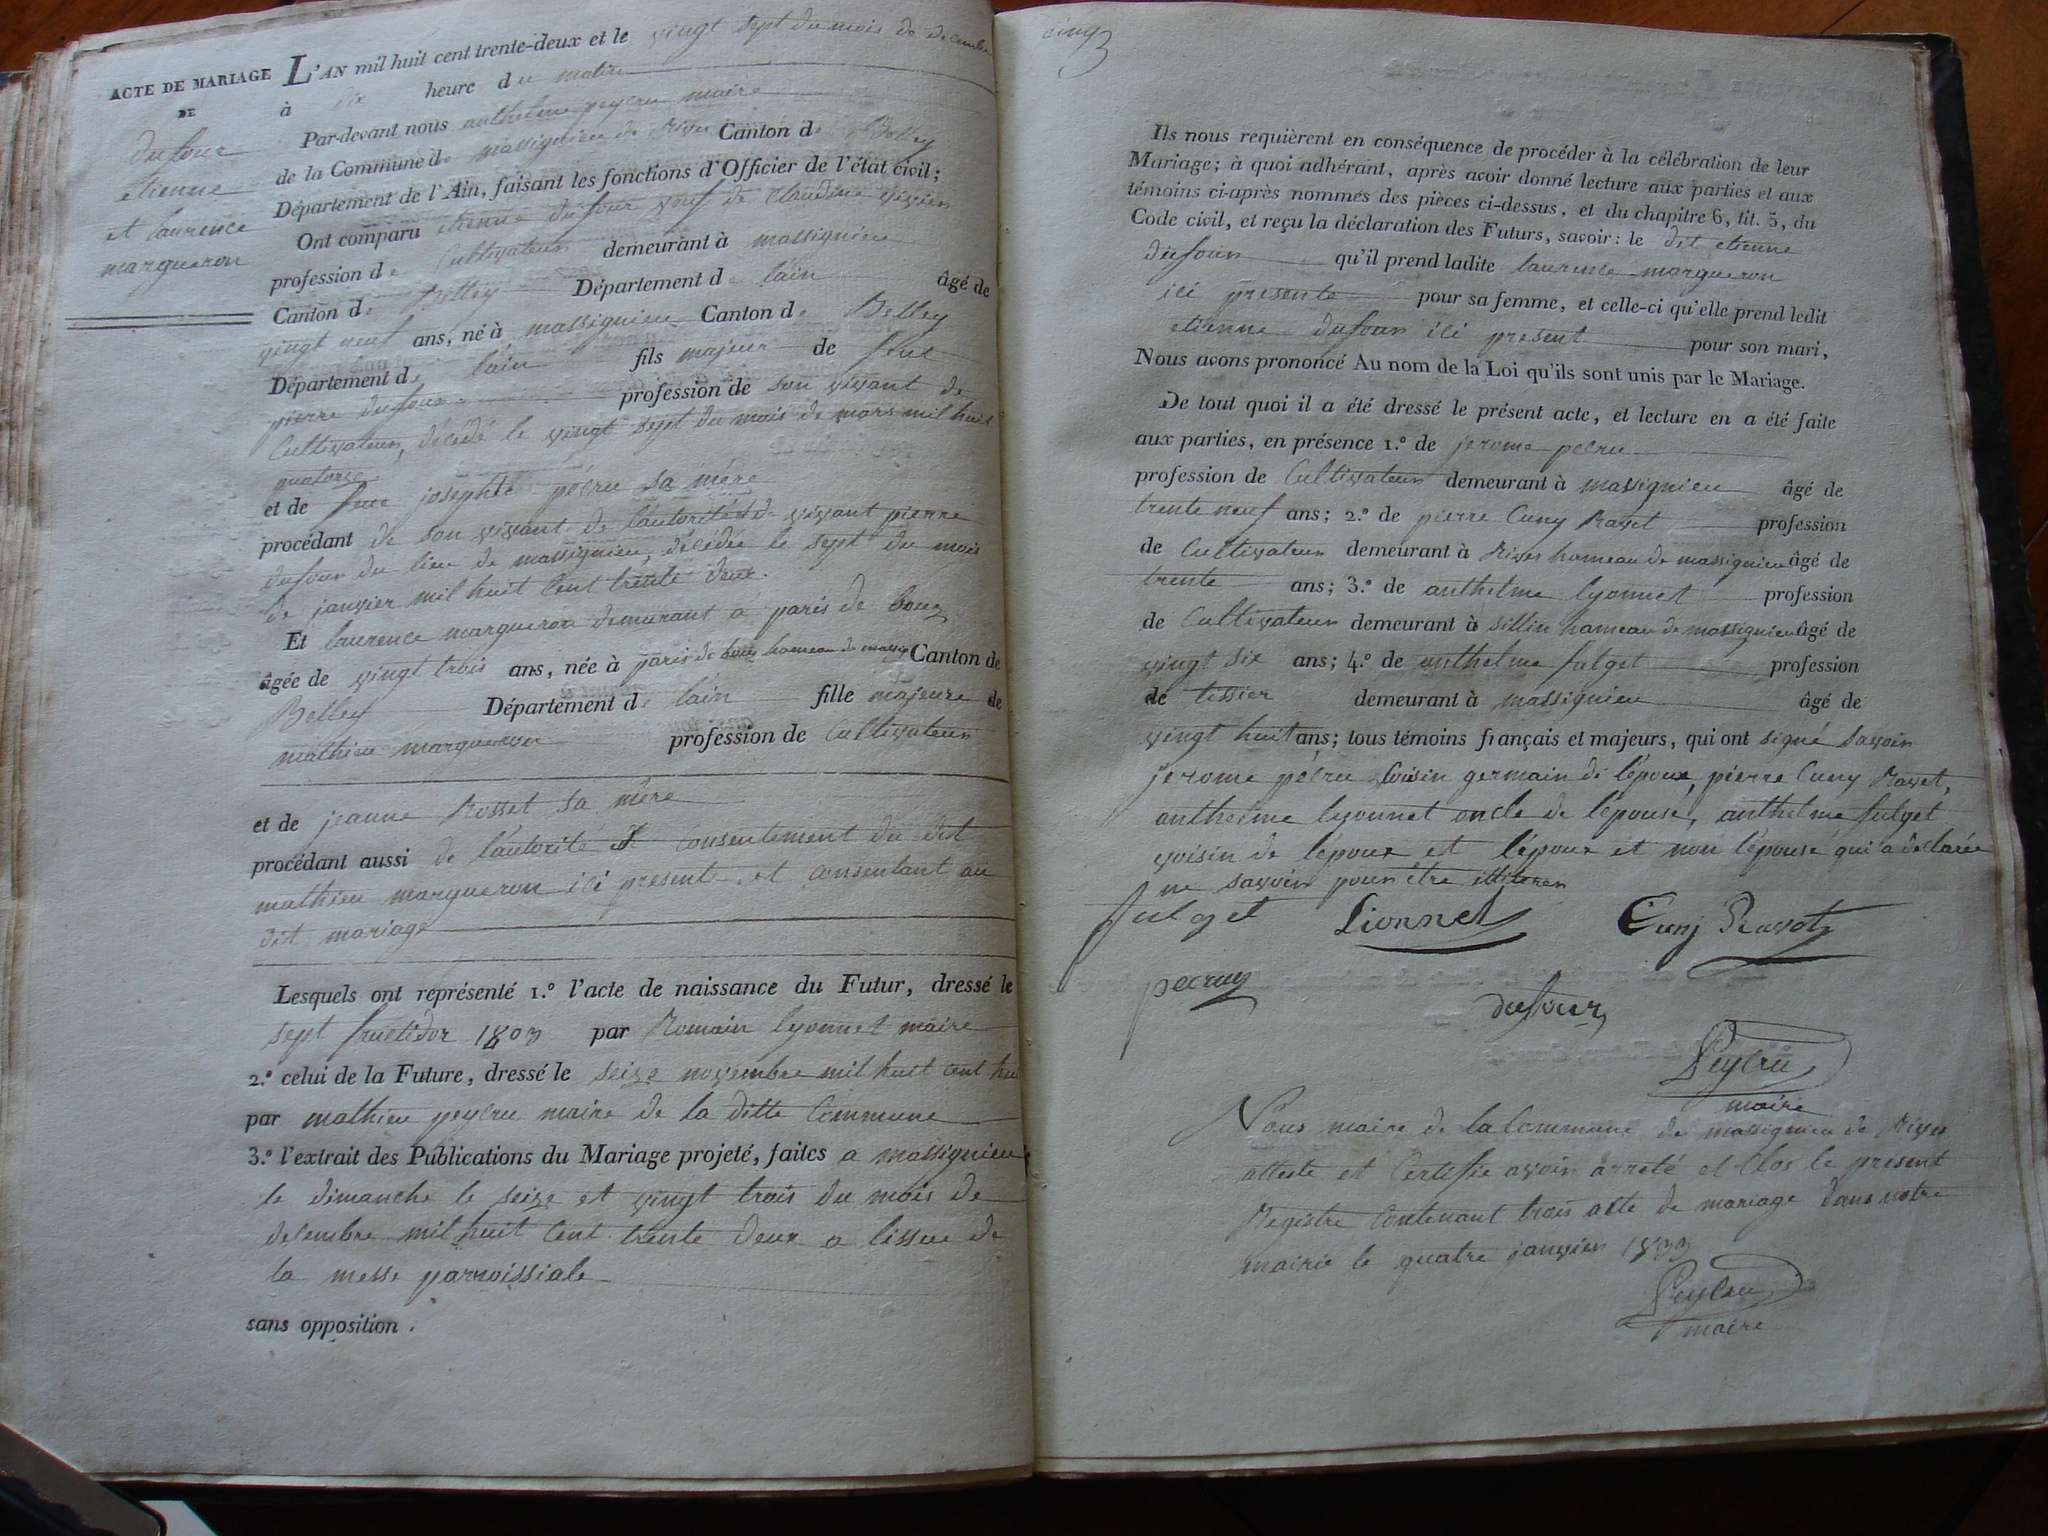 ACTE DE MARIAGE
DE
dufour
etienne
et laurence
margueron
L'AN mil huit cent trente-deux et le vingt sept du mois de decembre
à dix heure du matin
Par-devant nous anthelme peycru maire
de la Commune de massignieu de Rives Canton de Belley
Département de l'Ain, faisant les fonctions d'Officier de l'état civil;
Ont comparu etienne dufour veuf de claudine vivien
profession de Cultivateur demeurant à massignieu
Canton de Belley Département de lain âgé de
vingt neuf ans, né à massignieu Canton de Belley
Département de lain fils majeur de feut
pierre dufour profession de son vivant de
Cultivateur, décédé le vingt sept du mois de mars mil huit
quatorse
et de feue josephte pécru sa mére
procédant de son vivant de lautorité de vivant pierre
dufour du lieu de massignieu, décédée le sept du mois
de janvier mil huit Cent trente deux.
Et laurence margueron demurant à paris de
âgée de vingt trois ans, née à paris de hameau de massig Canton de
Belley Département de lain fille majeure de
mathieu margueron profession de Cultivateur
et de jeanne Rosset sa mére
procédant aussi de lautorité et consentement du dit
mathieu margueron ici present et consentant au
dit mariage
Lesquels ont représenté 1.º l'acte de naissance du Futur, dressé le
sept fructidor 1803 par Romain lyonnet maire
2.º celui de la Future, dressé le seize novembre mil huit cent hui
par mathieu peycru maire de la ditte Commune
3.º l'extrait des Publications du Mariage projeté, faites a massignieu
le dimanche le seize et vingt trois du mois de
desembre mil huit Cent trente deux a lissue de
la messe parroissiale
sans opposition.
cinq
Ils nous requièrent en conséquence de procéder à la célébration de leur
Mariage; à quoi adhérant, après avoir donné lecture aux parties et aux
témoins ci-après nommés des pièces ci-dessus, et du chapitre 6, tit. 5, du
Code civil, et reçu la déclaration des Futurs, savoir: le dit etienne
dufour qu'il prend ladite laurence margueron
ici presente pour sa femme, et celle-ci qu'elle prend ledit
etienne dufour ici present pour son mari,
Nous avons prononcé Au nom de la Loi qu'ils sont unis par le Mariage.
De tout quoi il a été dressé le présent acte, et lecture en a été faite
aux parties, en présence 1.º de jerome pecru
profession de Cultivateur demeurant à massignieu âgé de
trente neuf ans; 2.º de pierre Cuny Ravet profession
de Cultivateur demeurant à Rives hameau de massignieu âgé de
trente ans; 3.º de anthelme lyonnet profession
de Cultivateur demeurant à sillin hameau de massignieu âgé de
vingt six ans; 4.º de anthelme fulget profession
de tissier demeurant à massignieu âgé de
vingt huit ans; tous témoins français et majeurs, qui ont signé savoir
jerome pécru Cousin germain de lépoux, pierre Cuny Ravet,
anthelme lyonnet oncle de lépouse, anthelme fulget
voisin de lépoux et lépoux et non lépouse qui a déclarée
ne savoir pour être
fulget Lionnet Cunj Ravot
pecruy
dufour
Peycru
maire
Nous maire de la Commune de massignieu de Rives
atteste et Certifie avoir arreté et Clos le présent
Registre Contenant trois acte de mariage dans notre
mairie le quatre janvier 1833
Peycru
maire